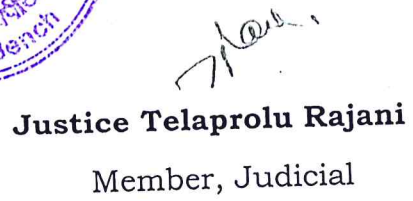 Bench
Justice Telaprolu Rajani
Member, Judicial